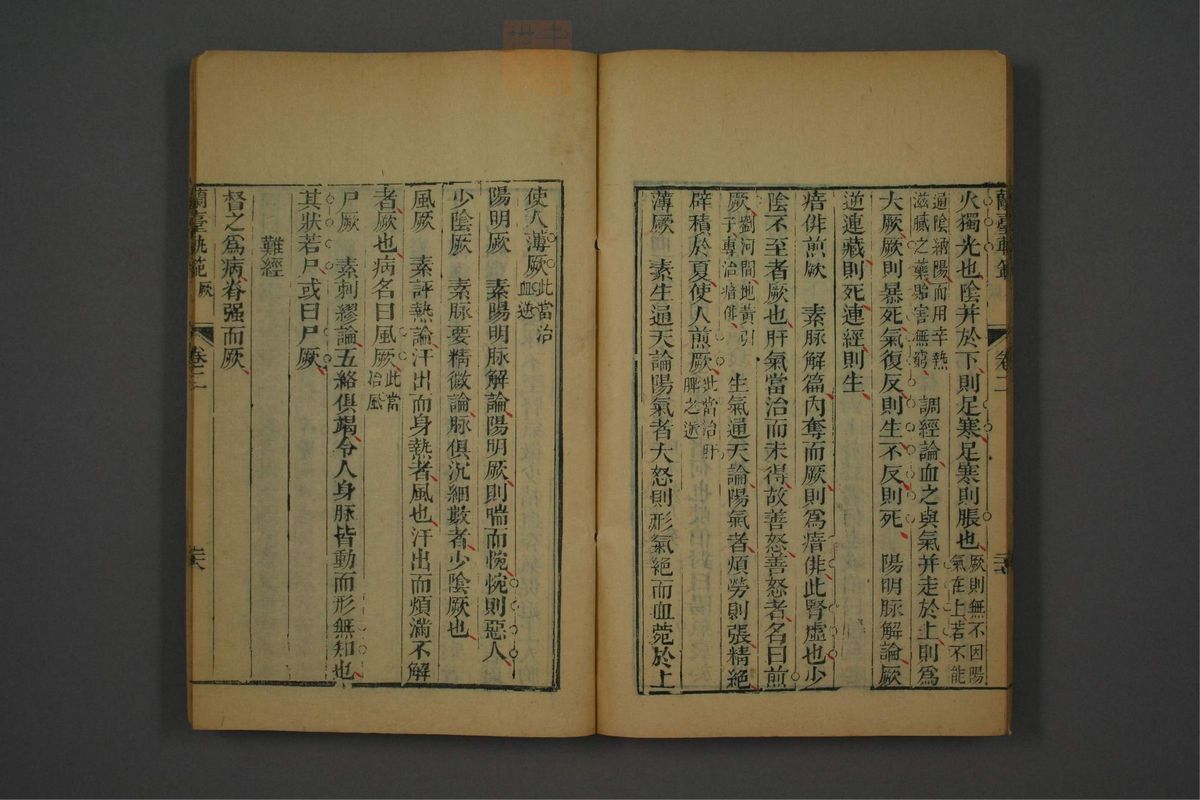 火獨光也陰并於下則足寒足寒則脹也厥則無不因陽氣在上若不能
過陰納陽而用辛熱滋膩之藥貽害無窮 調經論血之與氣并走於上則為
大厥厥則暴死氣復反則生不反則死 陽明脈解論厥
逆連藏則死連經則生
瘖俳煎厥 素脈解篇內奪而厥則為瘖俳此腎虛也少
陰不至者厥也肝氣當治而未得故善怒善怒者名曰煎
厥劉河間地黃引子專治瘖俳 生氣通天論陽氣者煩勞則張精絕
辟積於夏使人煎厥此當治肝脾之逆
薄厥 素生通天論陽氣者大怒則形氣絕而血菀於上
卷二
使人薄厥此當治血逆
陽明厥 素陽明脈解論陽明厥則喘而惋惋則惡人
少陰厥 素脈要精微論脈俱沉細數者少陰厥也
風厥 素評熱論汗出而身熱者風也汗出而煩滿不解
者厥也病名曰風厥此當治風
尸厥 素刺繆論五絡俱竭令人身脈皆動而形無知也
其狀若尸或曰尸厥
難經
督之為病脊强而厥
蘭臺軌範 厥 卷二